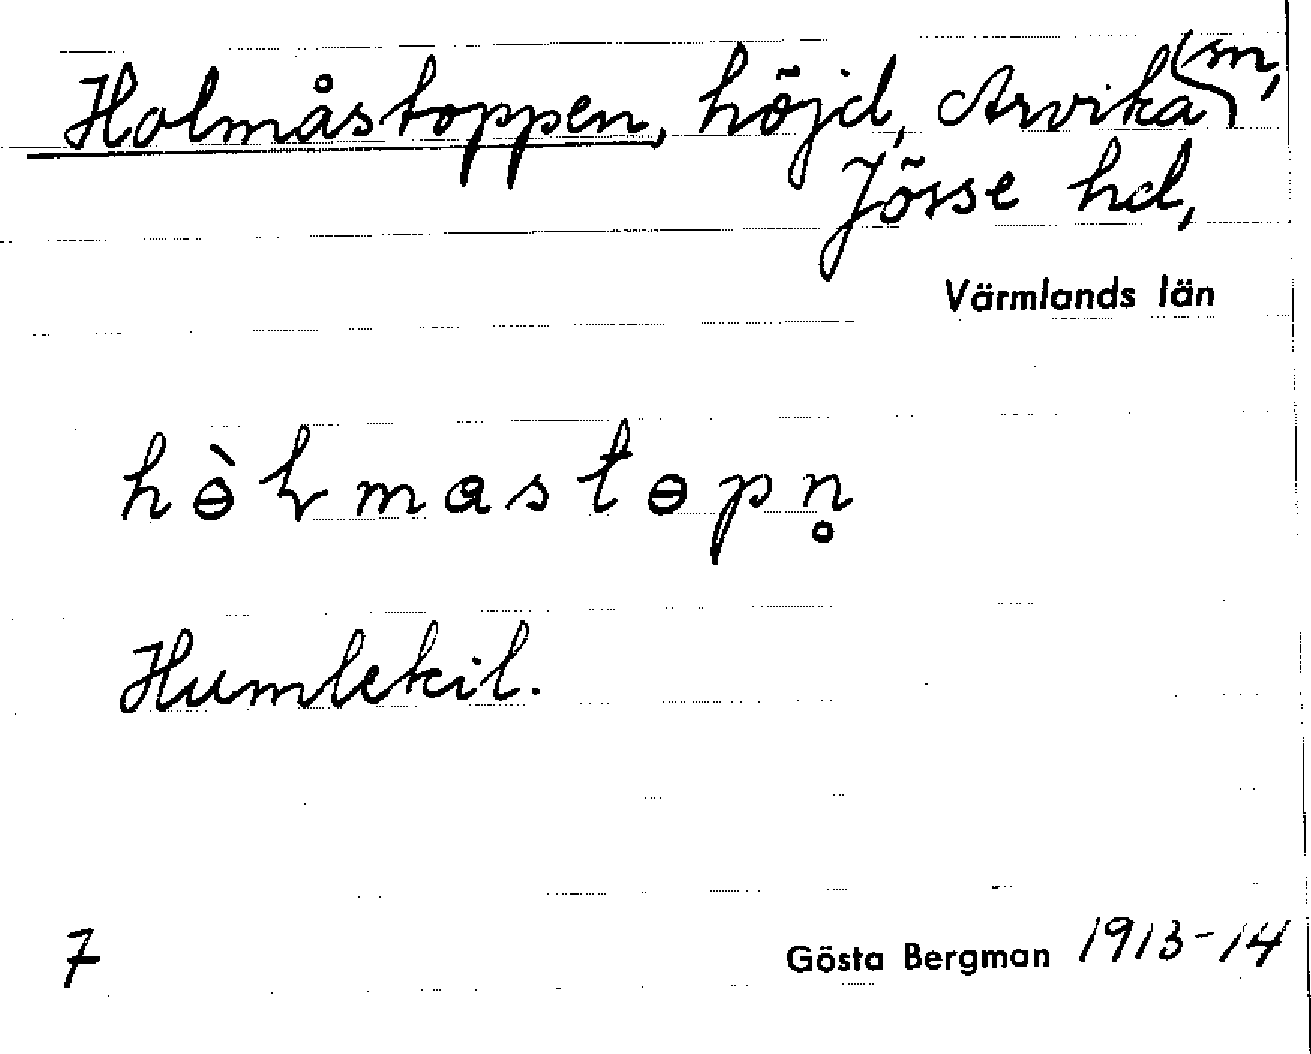 Holmåstoppen, höjd, Arvika sn,
Jösse hd,
Värmlands län
hɵ̀ɫmastɵpn̥
Humlekil.
7 Gösta Bergman 1913-14